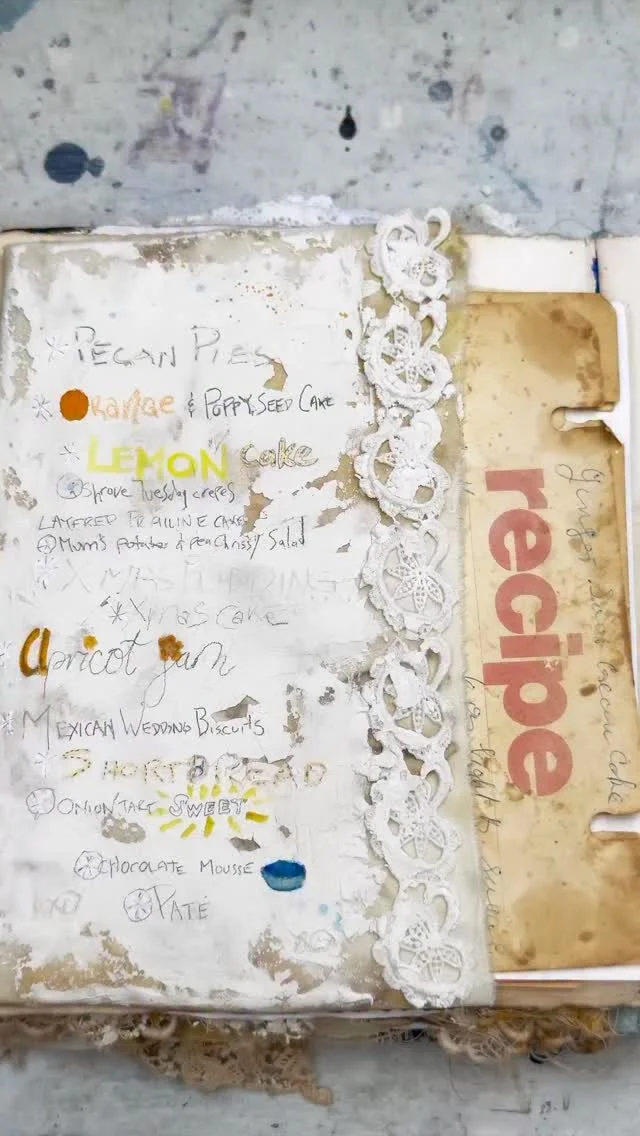 * PECAN PIES
* ORANGE & POPPY SEED CAKE
* LEMON cake
* Shrove Tuesday crepes
LAYERED PRALINE CAKE
* Mum's potato & pea Chrissy Salad
* XMAS PUDDING
*Xmas cake
* apricot jam
* MEXICAN WEDDING BISCUITS
* SHORTBREAD
* ONION TART SWEET
* CHOCOLATE MOUSSE
* PATE
xo
xo
recipe
Ginger Sour Cream Cake